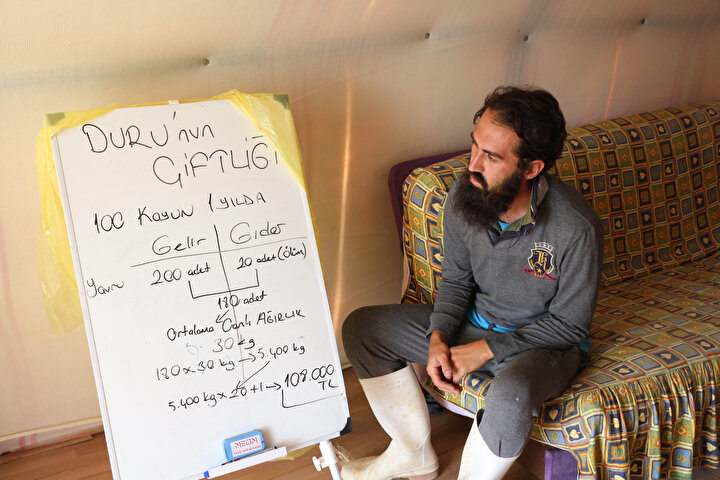 DURU'NUN
ÇİFTLİĞİ
100 KOYUN 1 YILDA
Gelir Gider
Yavru 200 adet 20 adet (Ölüm)
180 adet
Ortalama Canlı AĞIRLIK
30 kg
180 x 30 kg → 5.400 kg
5.400 kg x 20 tl → 108.000
TL